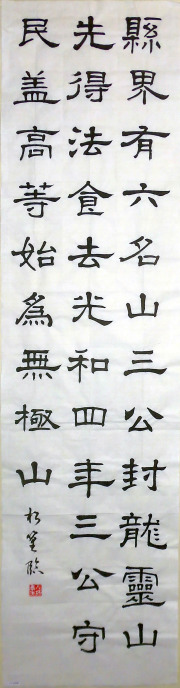 縣界有六名山三公封龍靈山
先得法食去光和四年三公守
民盖高等始為無極山
臨